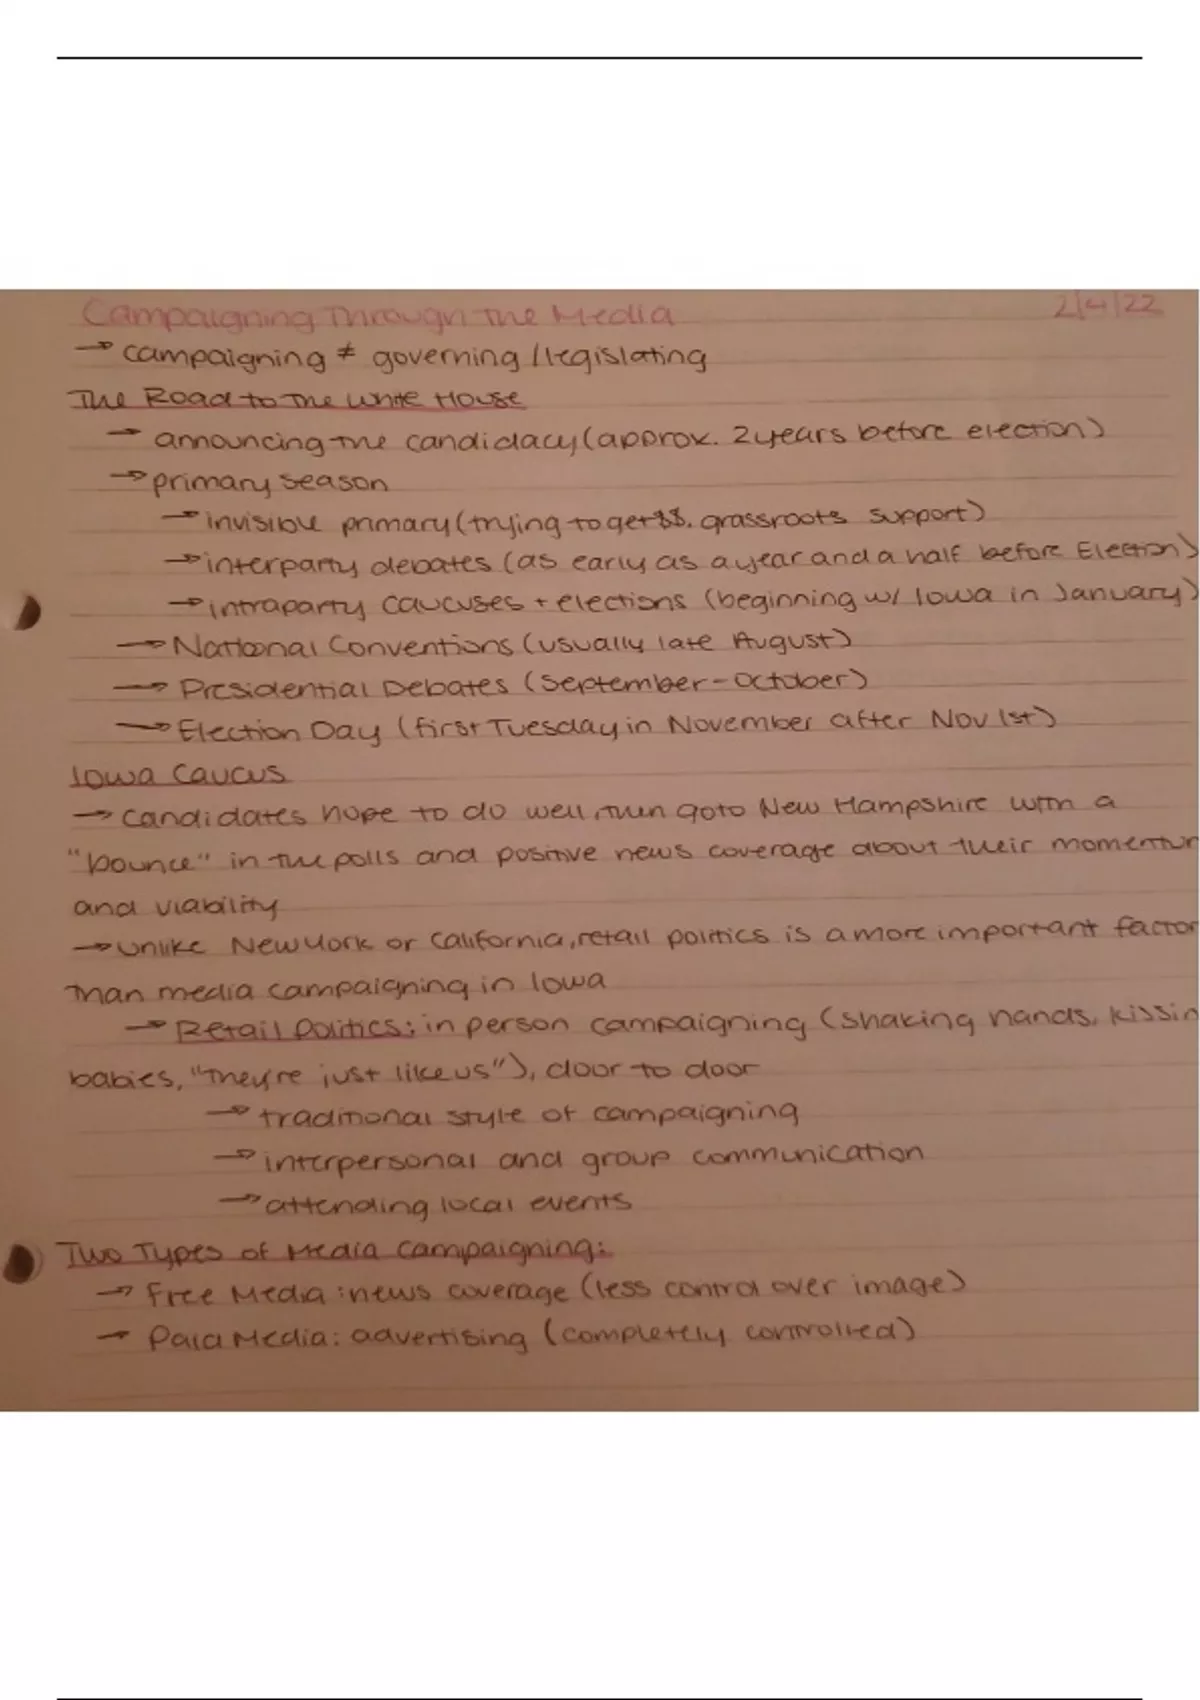 Campaigning Through The Media 2/4/22
→ campaigning ≠ governing / legislating
The Road to The White House
→ announcing the candidacy (approx. 2 years before election)
→ primary season
→ invisible primary (trying to get $$, grassroots support)
→ interparty debates (as early as a year and a half before Election)
→ intraparty caucuses + elections (beginning w/ Iowa in January)
→ National Conventions (usually late August)
→ Presidential Debates (September - October)
→ Election Day (first Tuesday in November after Nov 1st)
Iowa Caucus
→ candidates hope to do well, then go to New Hampshire with a
"bounce" in the polls and positive news coverage about their momentum
and viability
→ unlike New York or California, retail politics is a more important factor
than media campaigning in Iowa
→ Retail Politics: in person campaigning (shaking hands, kissin
babies, "They're just like us"), door to door
→ traditional style of campaigning
→ interpersonal and group communication
→ attending local events
Two Types of Media Campaigning:
→ Free Media: news coverage (less control over image)
→ Paid Media: advertising (completely controlled)